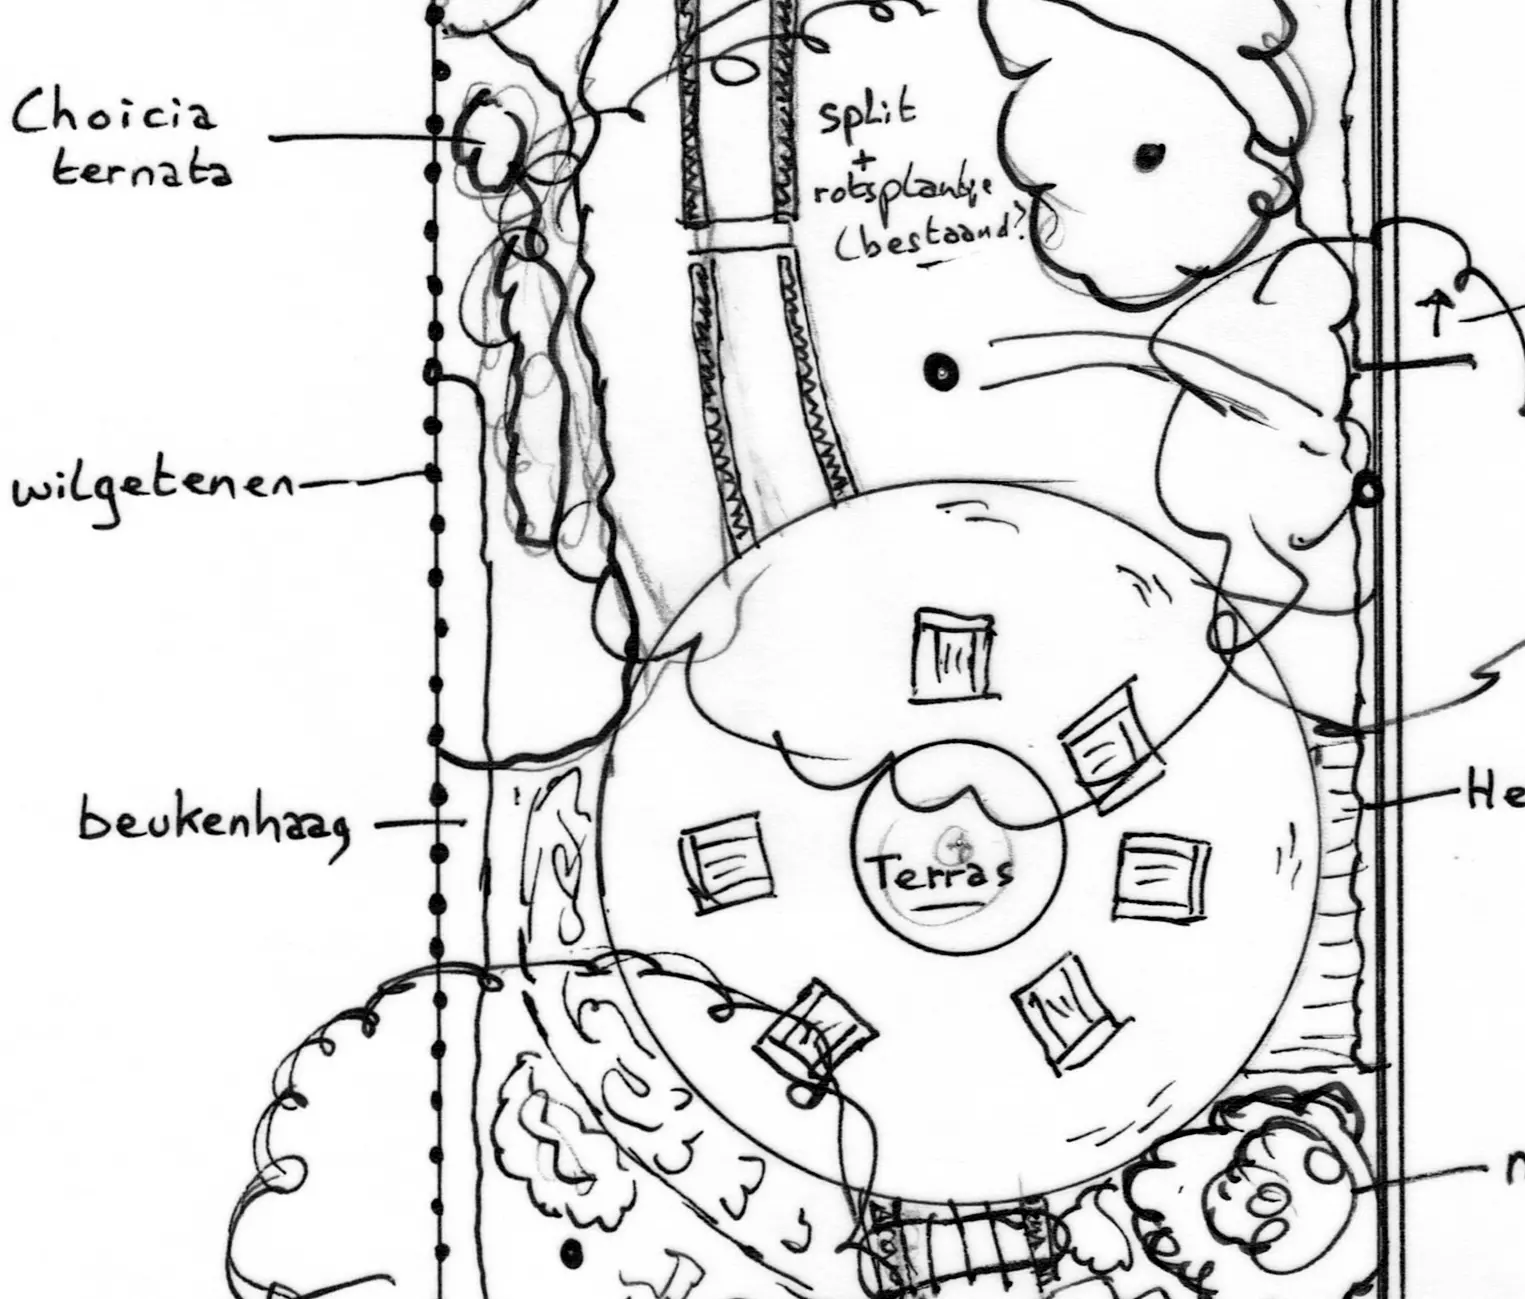 Choicia
ternata
split
+
rotsplantje
(bestaand?
wilgetenen
beukenhaag
He
Terras